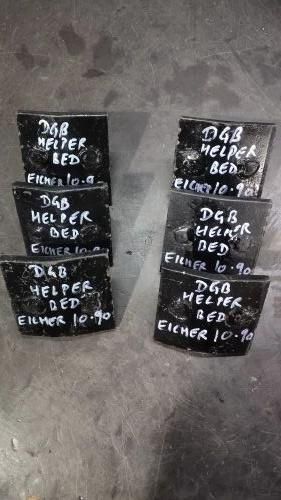 DGB
HELPER
BED
EICHER 10.9
DGB
HELPER
BED
EICHER 10.9
DGB
HELPER
BED
EICHER 10.90
DGB
HELPER
BED
EICHER 10.90
DGB
HELPER
BED
EICHER 10.90
DGB
HELPER
BED
EICHER 10.90